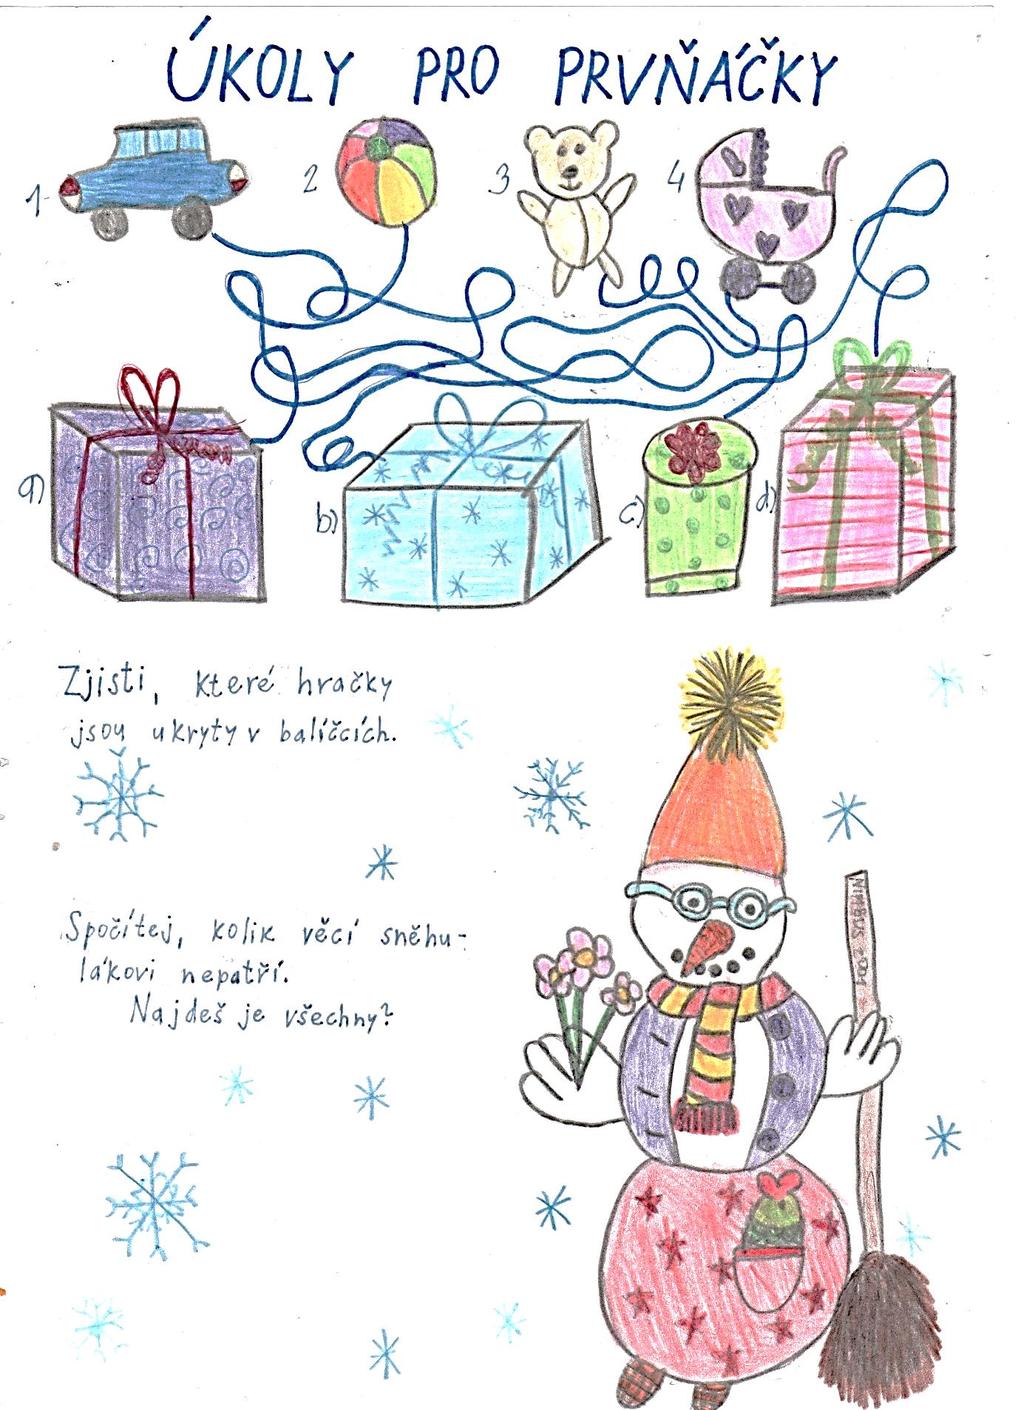 ÚKOLY PRO PRVŇÁČKY
1
2
3
4
a)
b)
c)
d)
Zjisti, které hračky
jsou ukryty v balíčcích.
Spočítej, kolik věcí sněhu-
lákovi nepatří.
Najdeš je všechny?
NIMBUS 2001